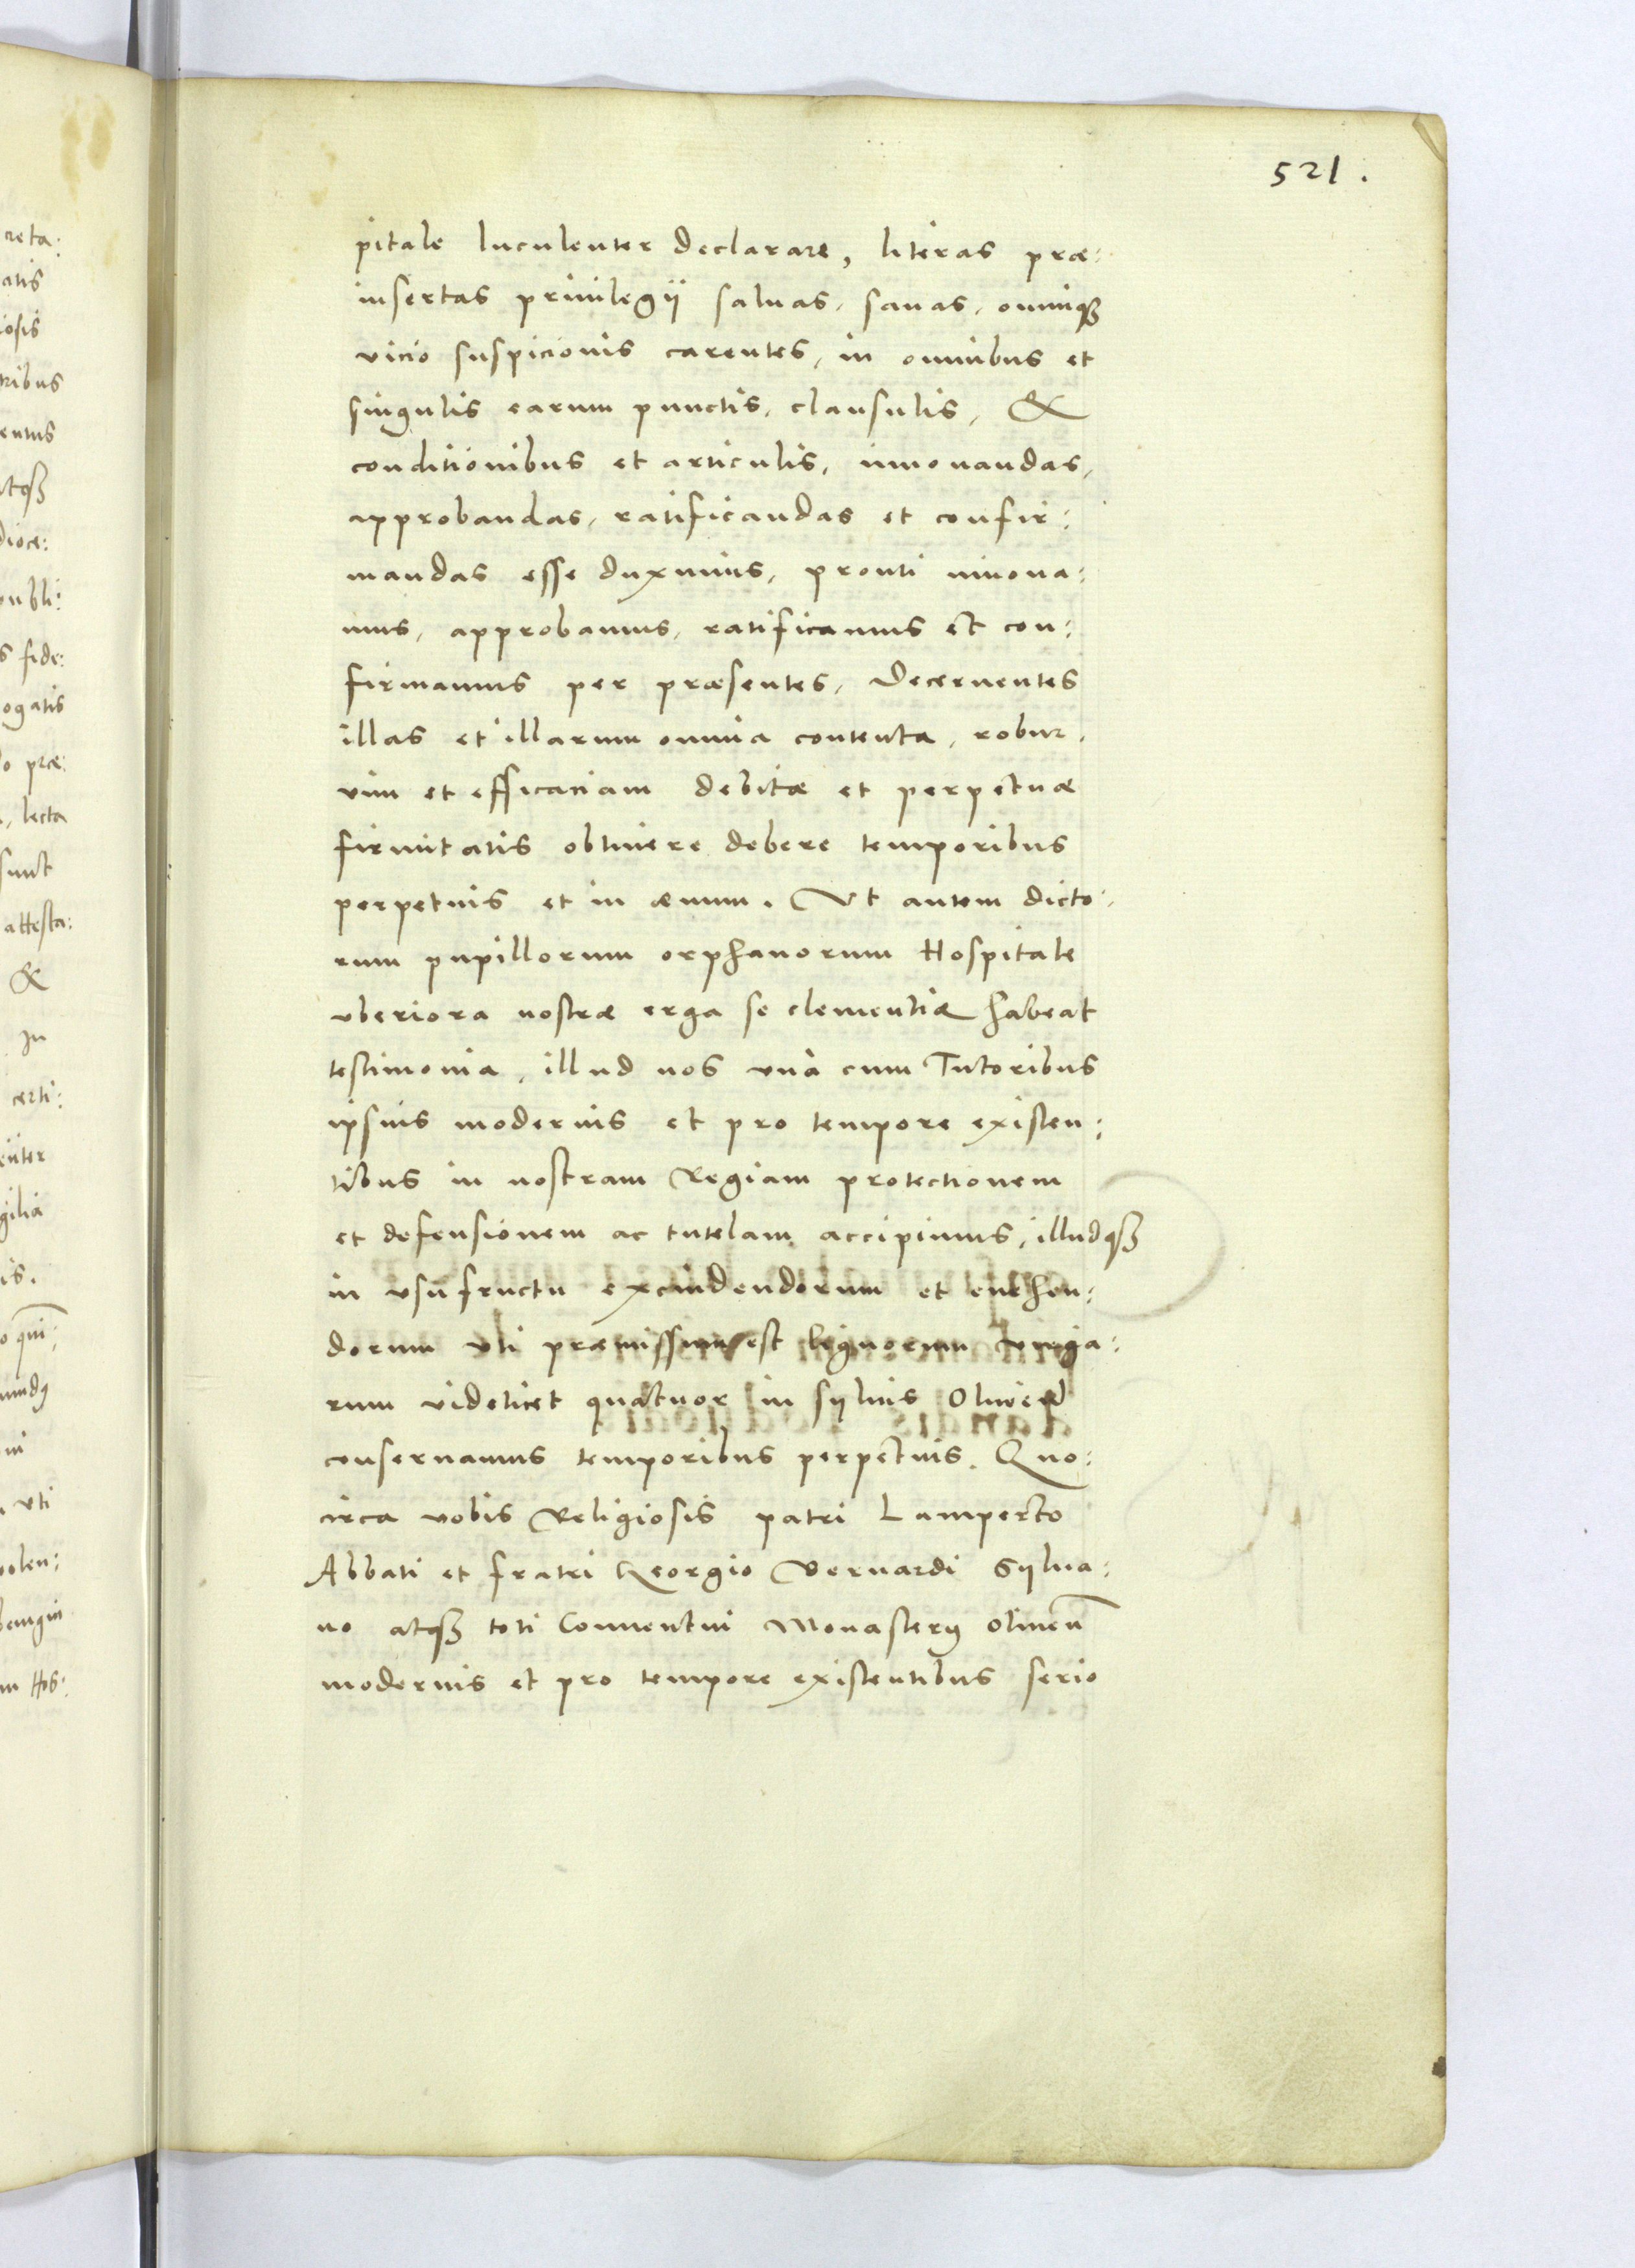 521.
pitale luculenter declarare, literas præ:
insertas priuilegij saluas, sanas, omniq3
vicio suspicionis carentes, in omnibus et
singulis earum punctis, clausulis, &
conditionibus et articulis, innouandas,
approbandas, ratificandas et confir:
mandas esse duximus, prouti innoua:
mus, approbamus, ratificamus et con:
firmamus per præsentes, decernentes
illas et illarum omnia contenta, robur,
vim et efficaciam debitæ et perpetuæ
firmitatis obtinere debere temporibus
perpetuis et in æuum. Vt autem dicto:
rum pupillorum orphanorum Hospitale
vberiora nostræ erga se clementiæ habeat
testimonia, illud nos vnà cum Tutoribus
ipsius modernis et pro tempore existen:
tibus in nostram Regiam protectionem
et defensionem ac tutelam accipimus, illudq3
in vsufructu excindendorum et euehen:
dorum vti præmissum est lignorum
rum videlicet quatuor in syluis
conseruamus temporibus perpetuis. Quo:
circa vobis Religiosis patri Lamperto
Abbati et fratri Georgio Bernardi Sylua:
no atq3 toti Conuentui Monasterij Oliuen
modernis et pro tempore existentibus serio